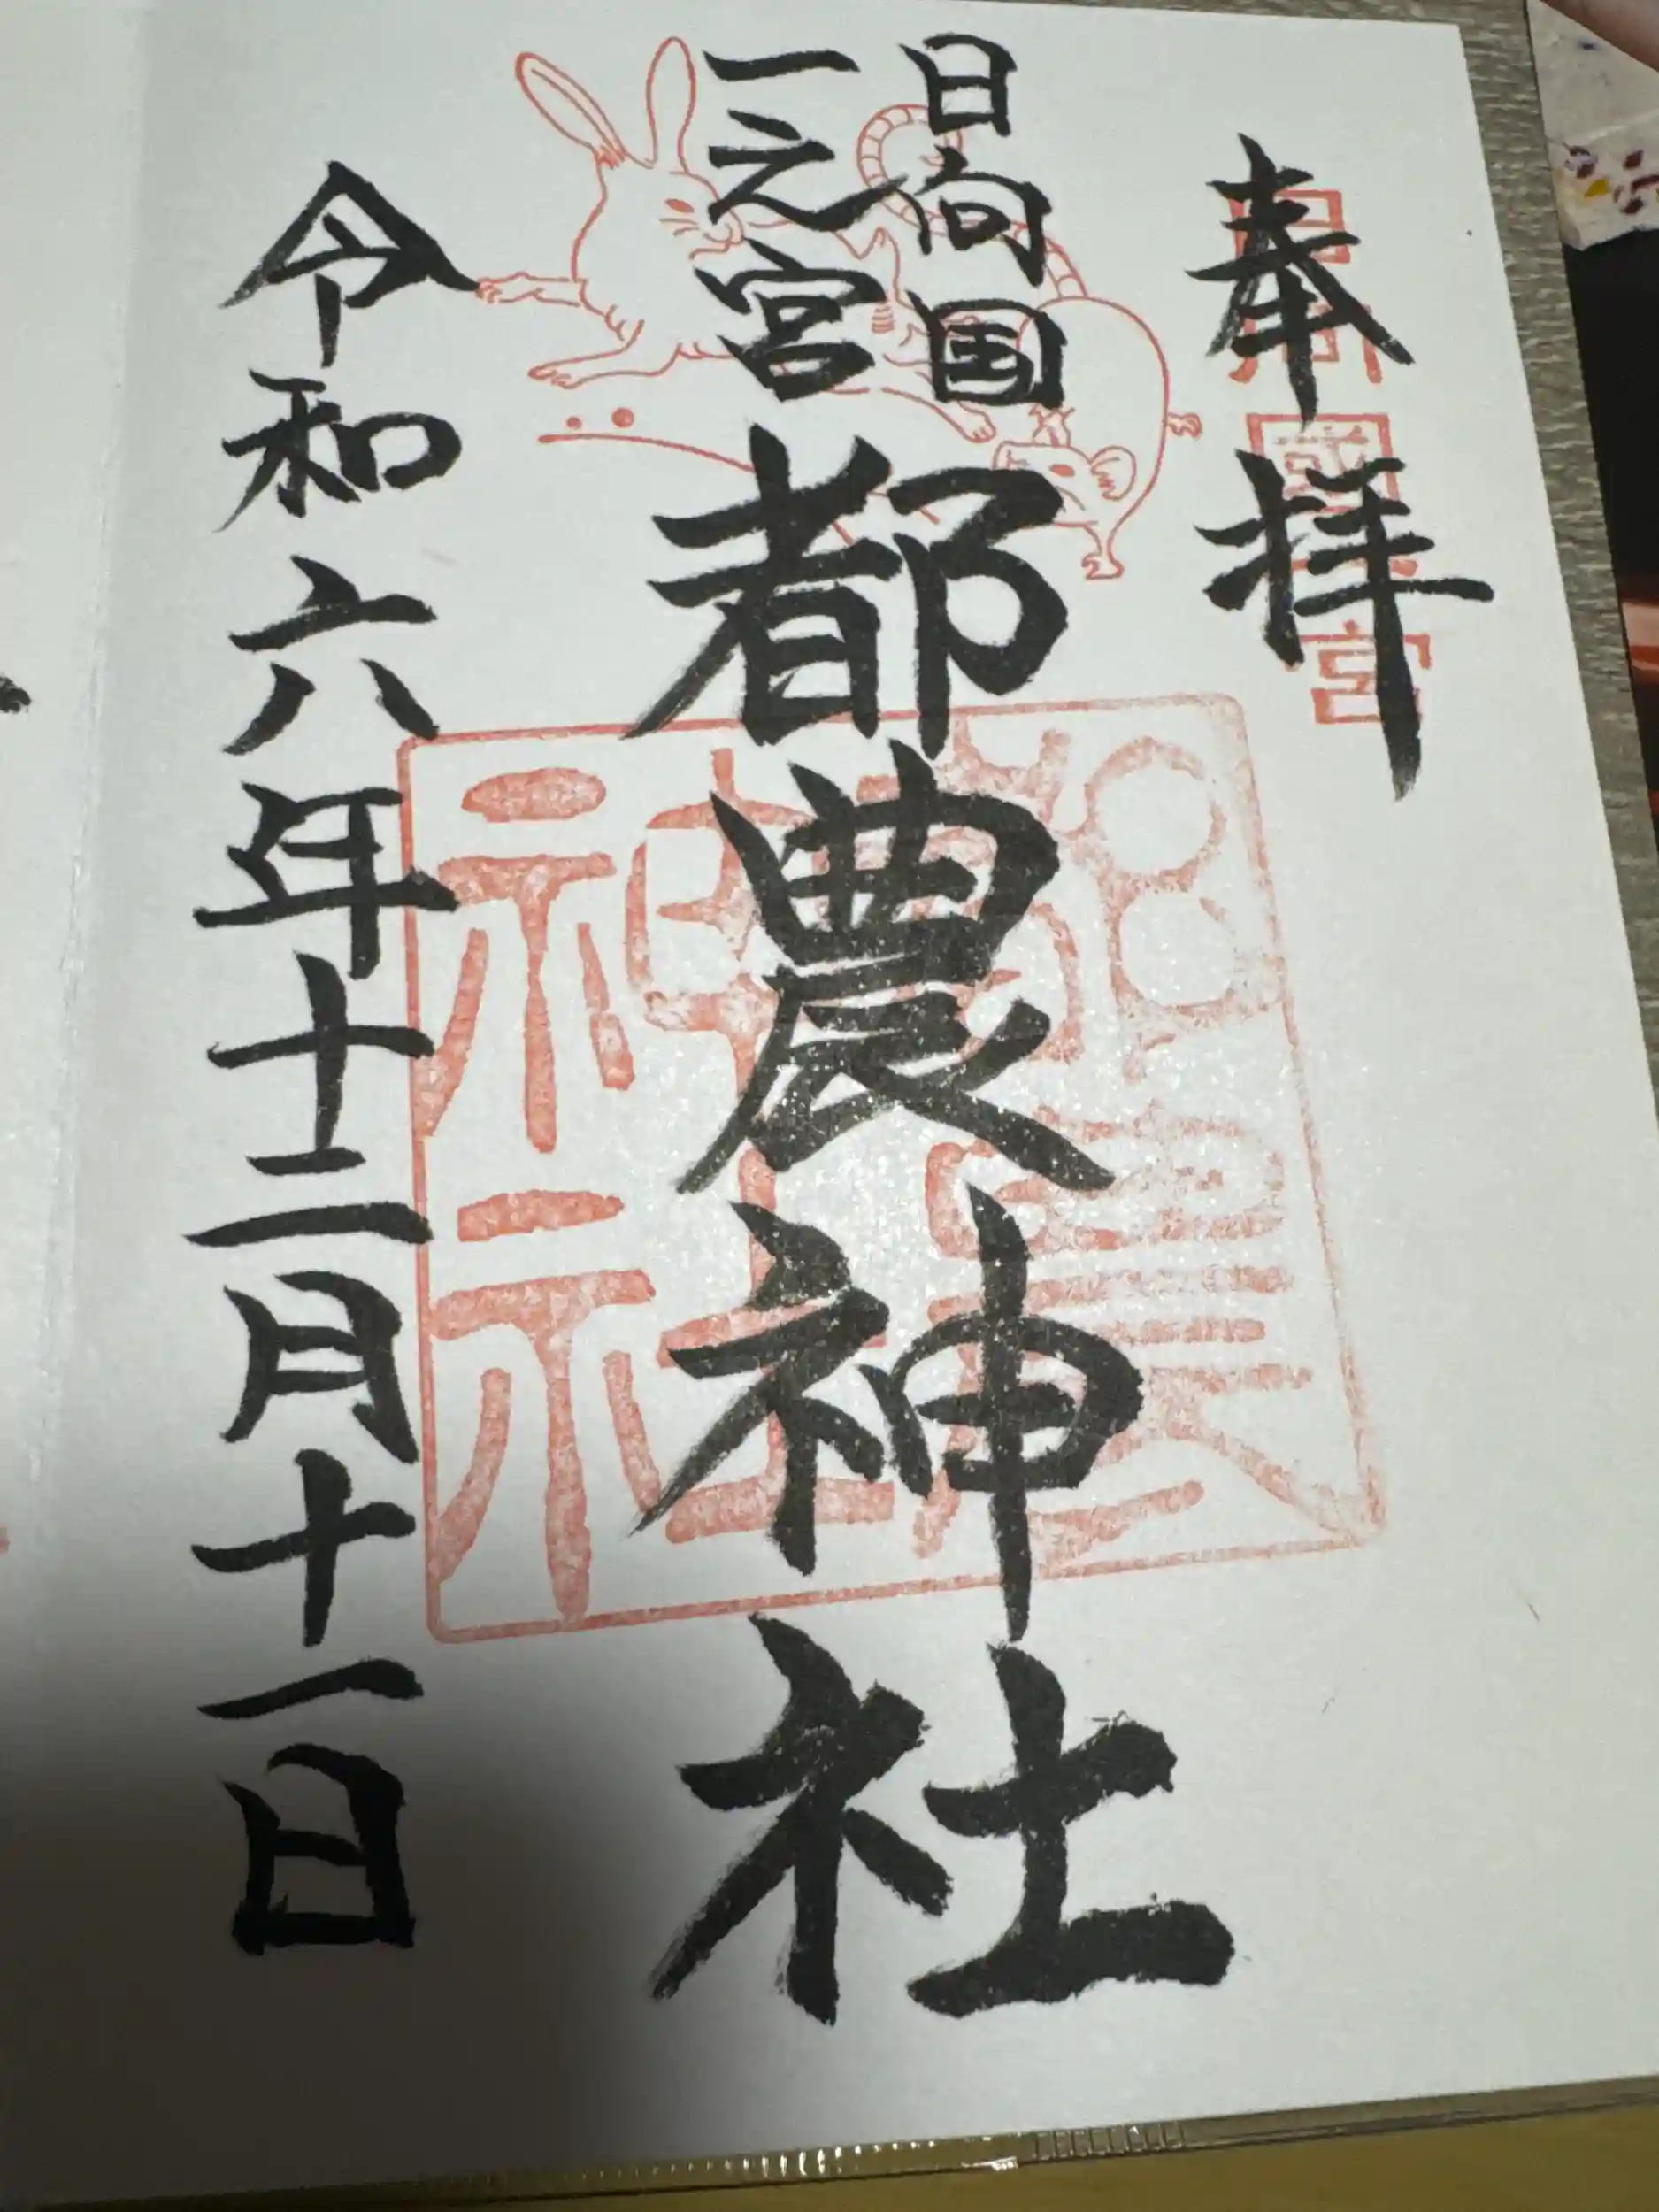 奉拝
日向国
一之宮
都農神社
令和六年十二月十一日
日向國一宮
都農神社